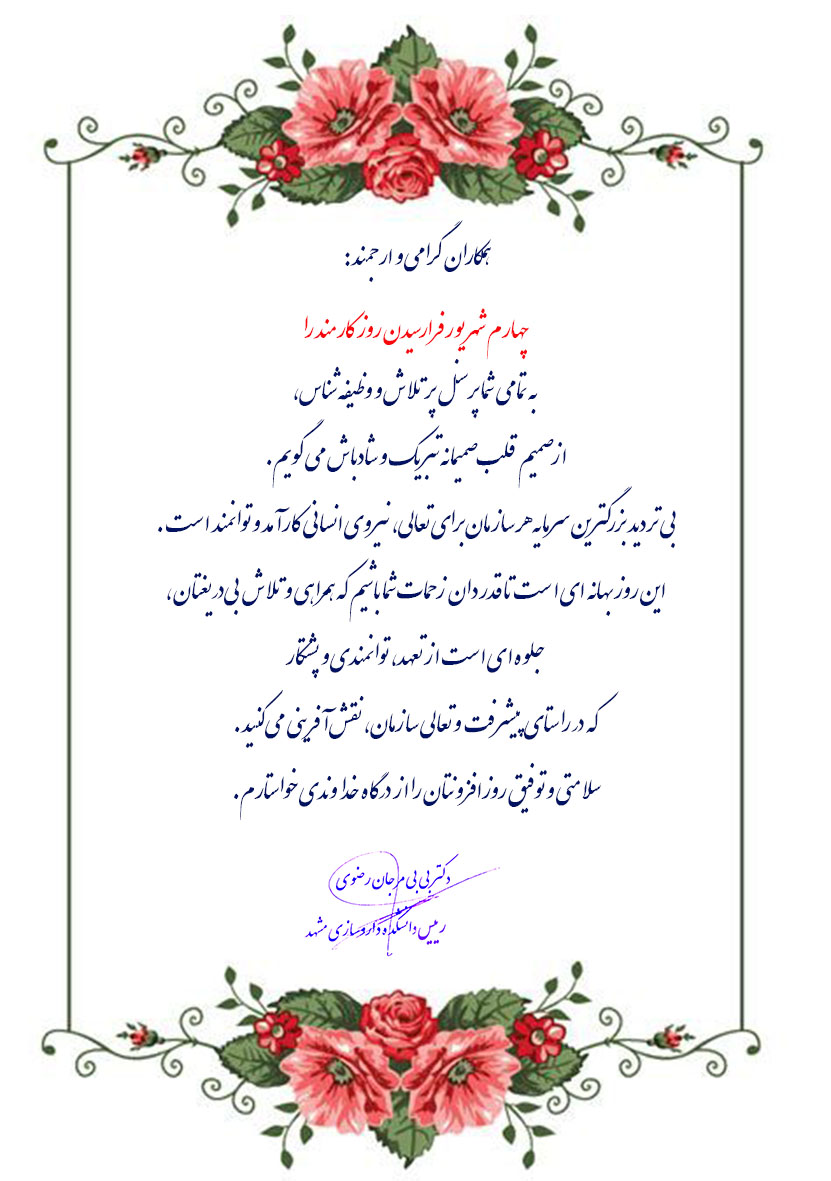 همکاران گرامی و ارجمند :
چهارم شهریور فرارسیدن روز کارمند را
به تمامی شما پرسنل پر تلاش و وظیفه شناس،
از صمیم قلب صمیمانه تبریک و شادباش می گویم .
بی تردید بزرگترین سرمایه هر سازمان برای تعالی، نیروی انسانی کارآمد و توانمند است .
این روز بهانه ای است تا قدردان زحمات شما باشیم که همراهی و تلاش بی دریغتان،
جلوه ای است از تعهد، توانمندی و پشتکار
که در راستای پیشرفت و تعالی سازمان، نقش آفرینی می کنید .
سلامتی و توفیق روز افزونتان را از درگاه خداوندی خواستارم .
دکتر بی بی مرجان رضوی
رییس دانشکده داروسازی مشهد